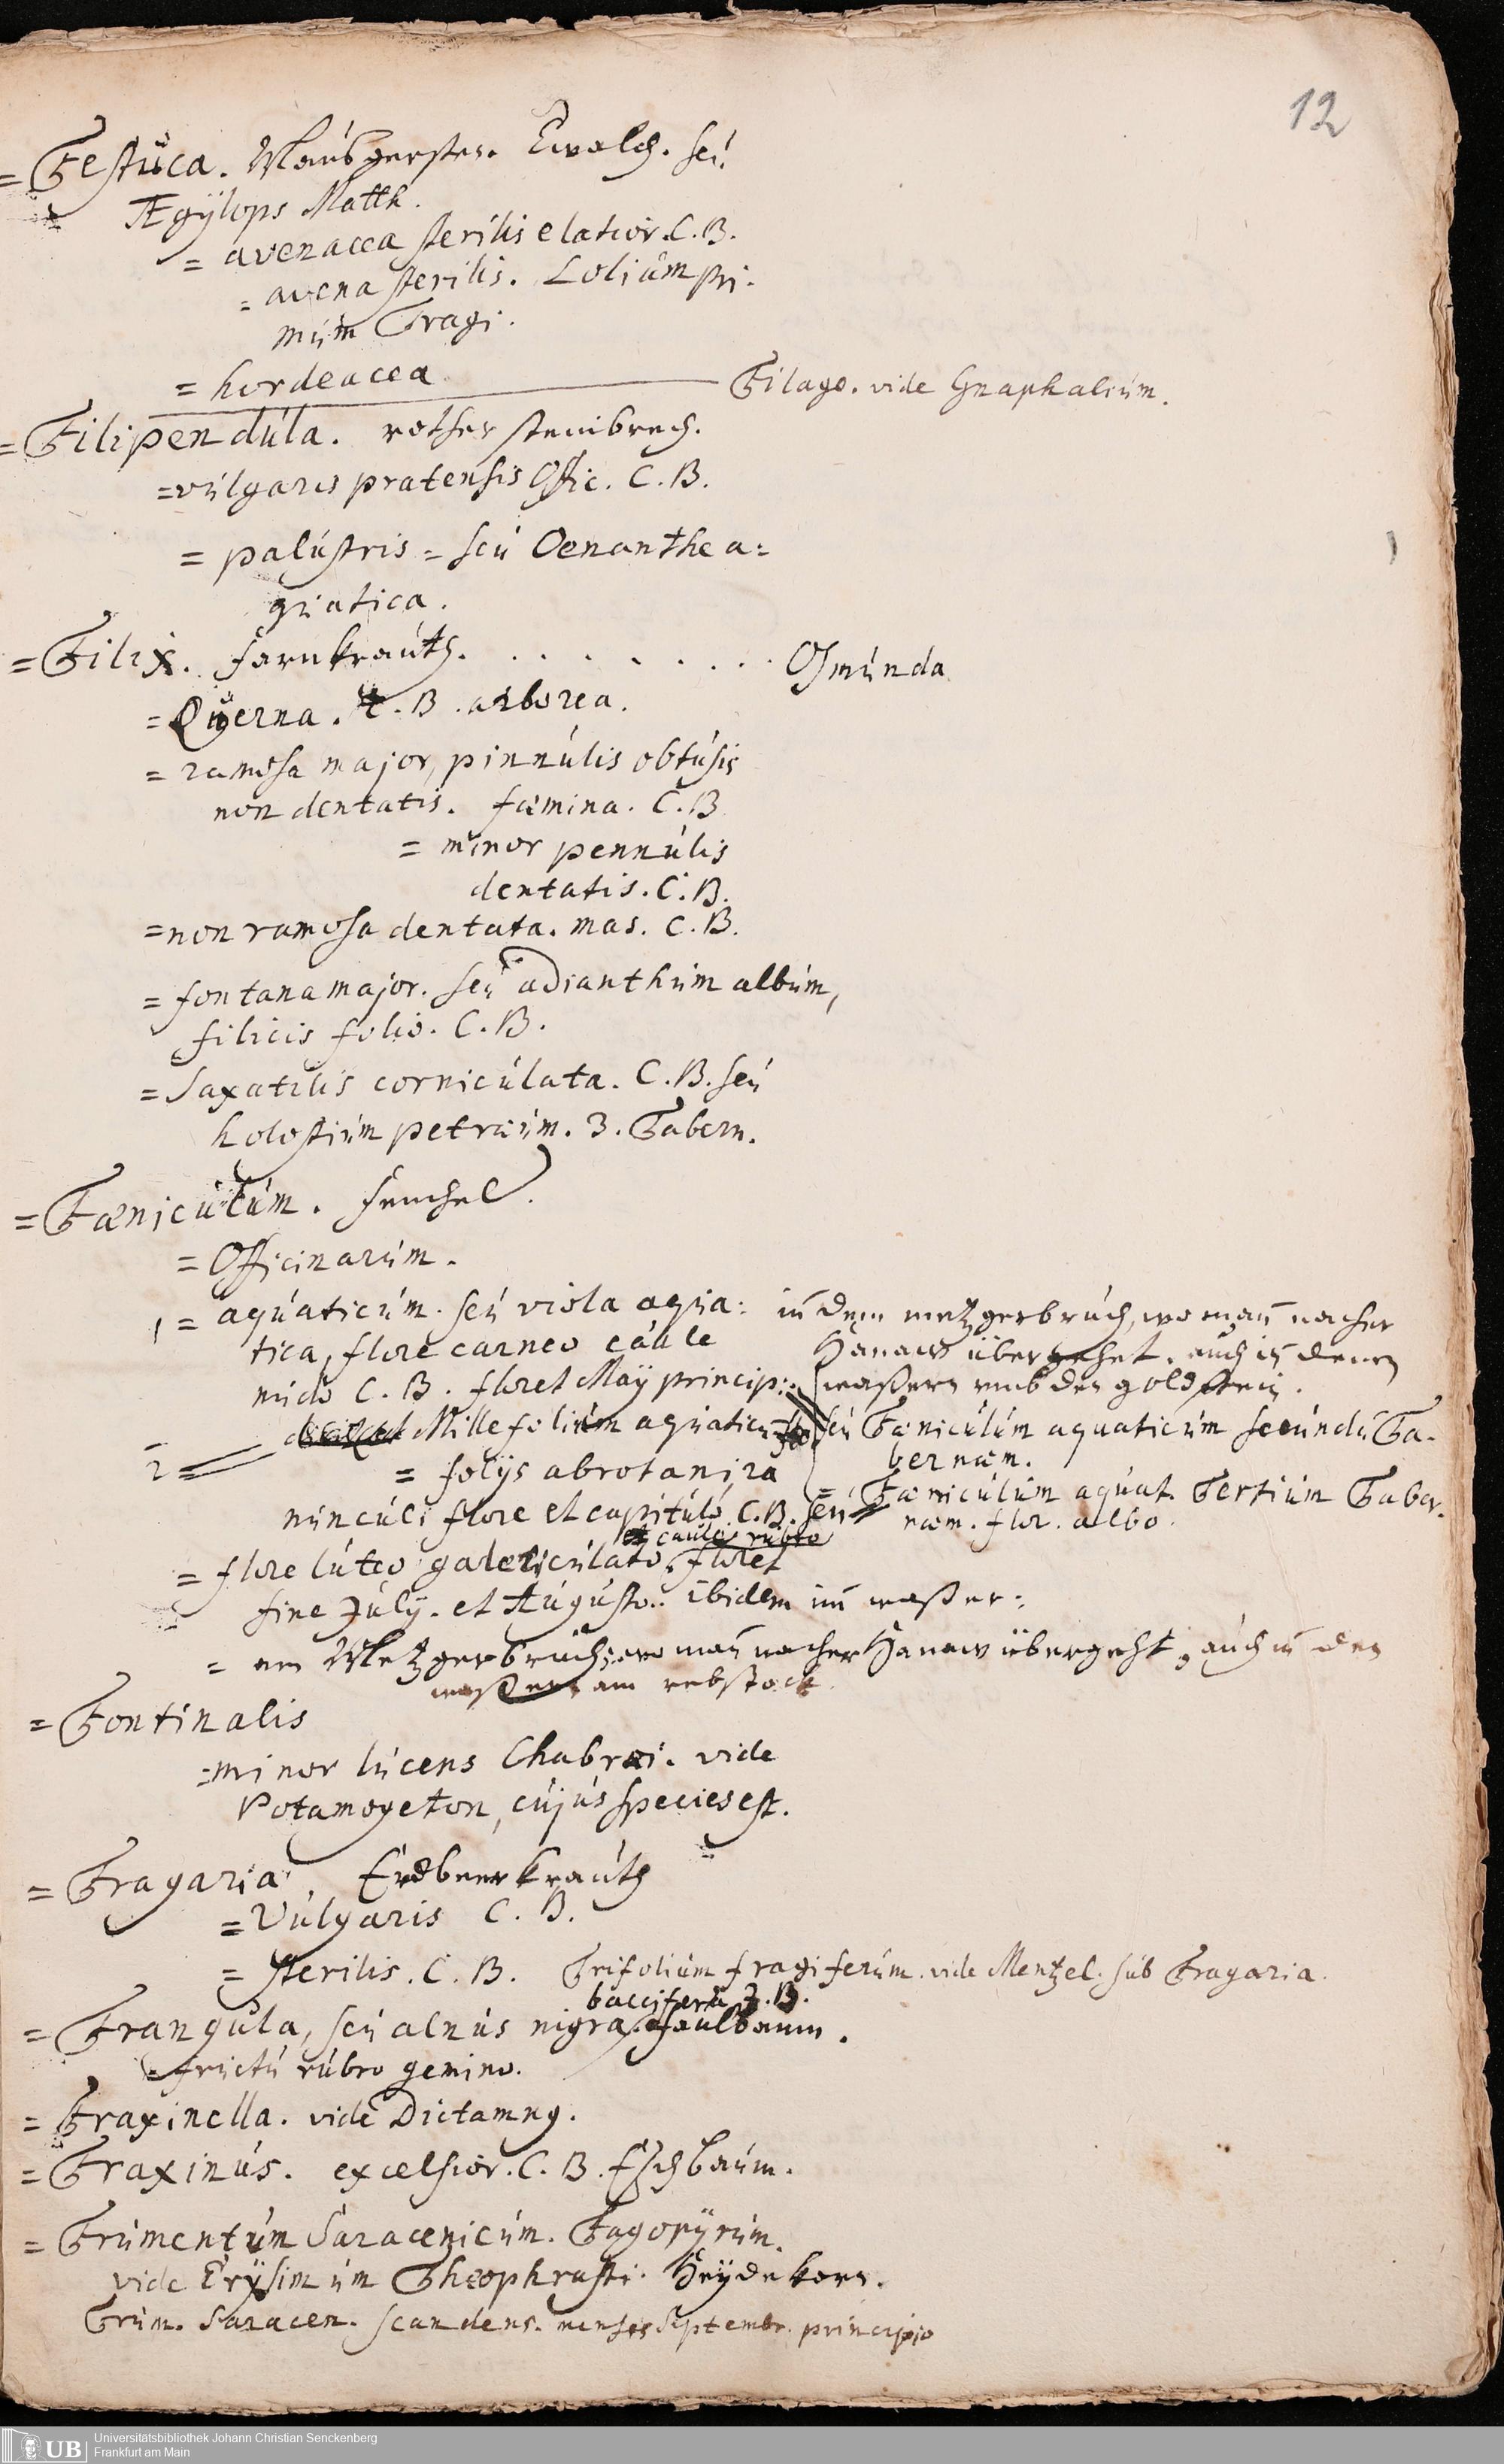 12
= Festuca. Maußgersten. Ewalch. seu
Ægÿlops Matth.
= avenacea sterilis elatior. C.B.
= avena sterilis. Lolium pri-
mum Tragi.
= hordeacea
Filago. vide Gnaphalium.
= Filipendúla. rother steinbrech.
= vúlgaris pratensis Offic. C.B.
= palústris = seú Oenanthe a=
quatica.
= Filix. farnkraúth. . . . . . . . . Osmúnda
= Querna. C.B. arborea.
= ramosa major, pinnúlis obtúsis
non dentatis. fæmina. C.B.
= minor pennúlis
dentatis. C.B.
= non ramosa dentata. mas. C.B.
= fontana major. seú adianthúm albúm,
filicis folio. C.B.
= Saxatilis cornicúlata. C.B. seú
holostiúm petræúm. 3. Tabern.
= Fæniculúm. fenchel.
= Officinarúm.
1 = aqúaticúm. seú viola aqua=
tica, flore carneo caúle
núdo C.B. floret Maÿ princip:
in dem metzgerbrúch, wo man nacher
Hanaw übergehet. auch in denen
waßern umb den goldstein.
2 = Millefoliúm aqúaticum
seú Fænicúlúm aquaticúm secúndú Ta-
bernæm.
= folijs abrotani, ra
núncúli flore et capitúlo. C.B. seú
= Fænicúlúm aqúat. Tertiúm Taber-
næm. flor. albo.
et caule rubro
= flore lúteo galericúlato. floret
fine Júlÿ. et Aúgústo. Ibidem im waßer.
= am Metzgerbrúch, wo man nacher Hanaw übergeht, aúch in den
waßern am rebstock.
= Fontinalis
= minor lúcens Chabræi. vide
Potamogeton, cújús species est.
= Fragaria. Erdbeerkraúth
= Vúlgaris C.B.
= sterilis. C.B. Trifoliúm fragiferúm. vide Mentzel. súb Fragaria.
baccifera J.B.
= Frangúla, seú alnús nigra. faulbaum.
= frúctú rúbro gemino.
= Fraxinella. vide Dictamnus.
= Fraxinús. excelsior. C.B. Eschbaúm.
= Frúmentúm Saracenicúm. Fagopÿrúm.
vide Erÿsimúm Theophrasti. Heÿdekorn.
Frúm. Saracen. scandens. mensis Septembr. principio
Universitätsbibliothek Johann Christian Senckenberg
Frankfurt am Main
UB